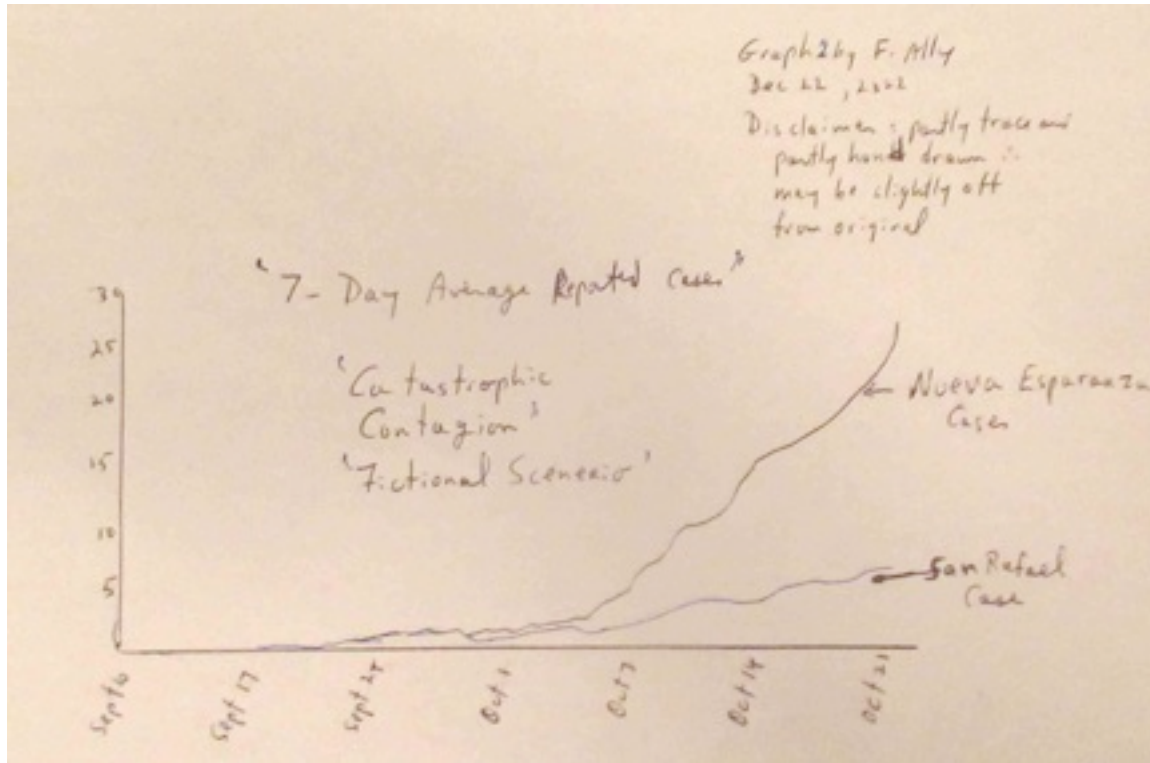 Graph 2 by F. Ally
Dec 22, 2022
Disclaimer: partly trace and
partly hand drawn ∴
may be slightly off
from original
"7-Day Average Reported Cases"
'Catastrophic
Contagion'
'Fictional Scenerio'
30
25
20
15
10
5
0
Nueva Esparanza
Cases
San Rafael
Case
Sept 6
Sept 17
Sept 24
Oct 1
Oct 7
Oct 14
Oct 21